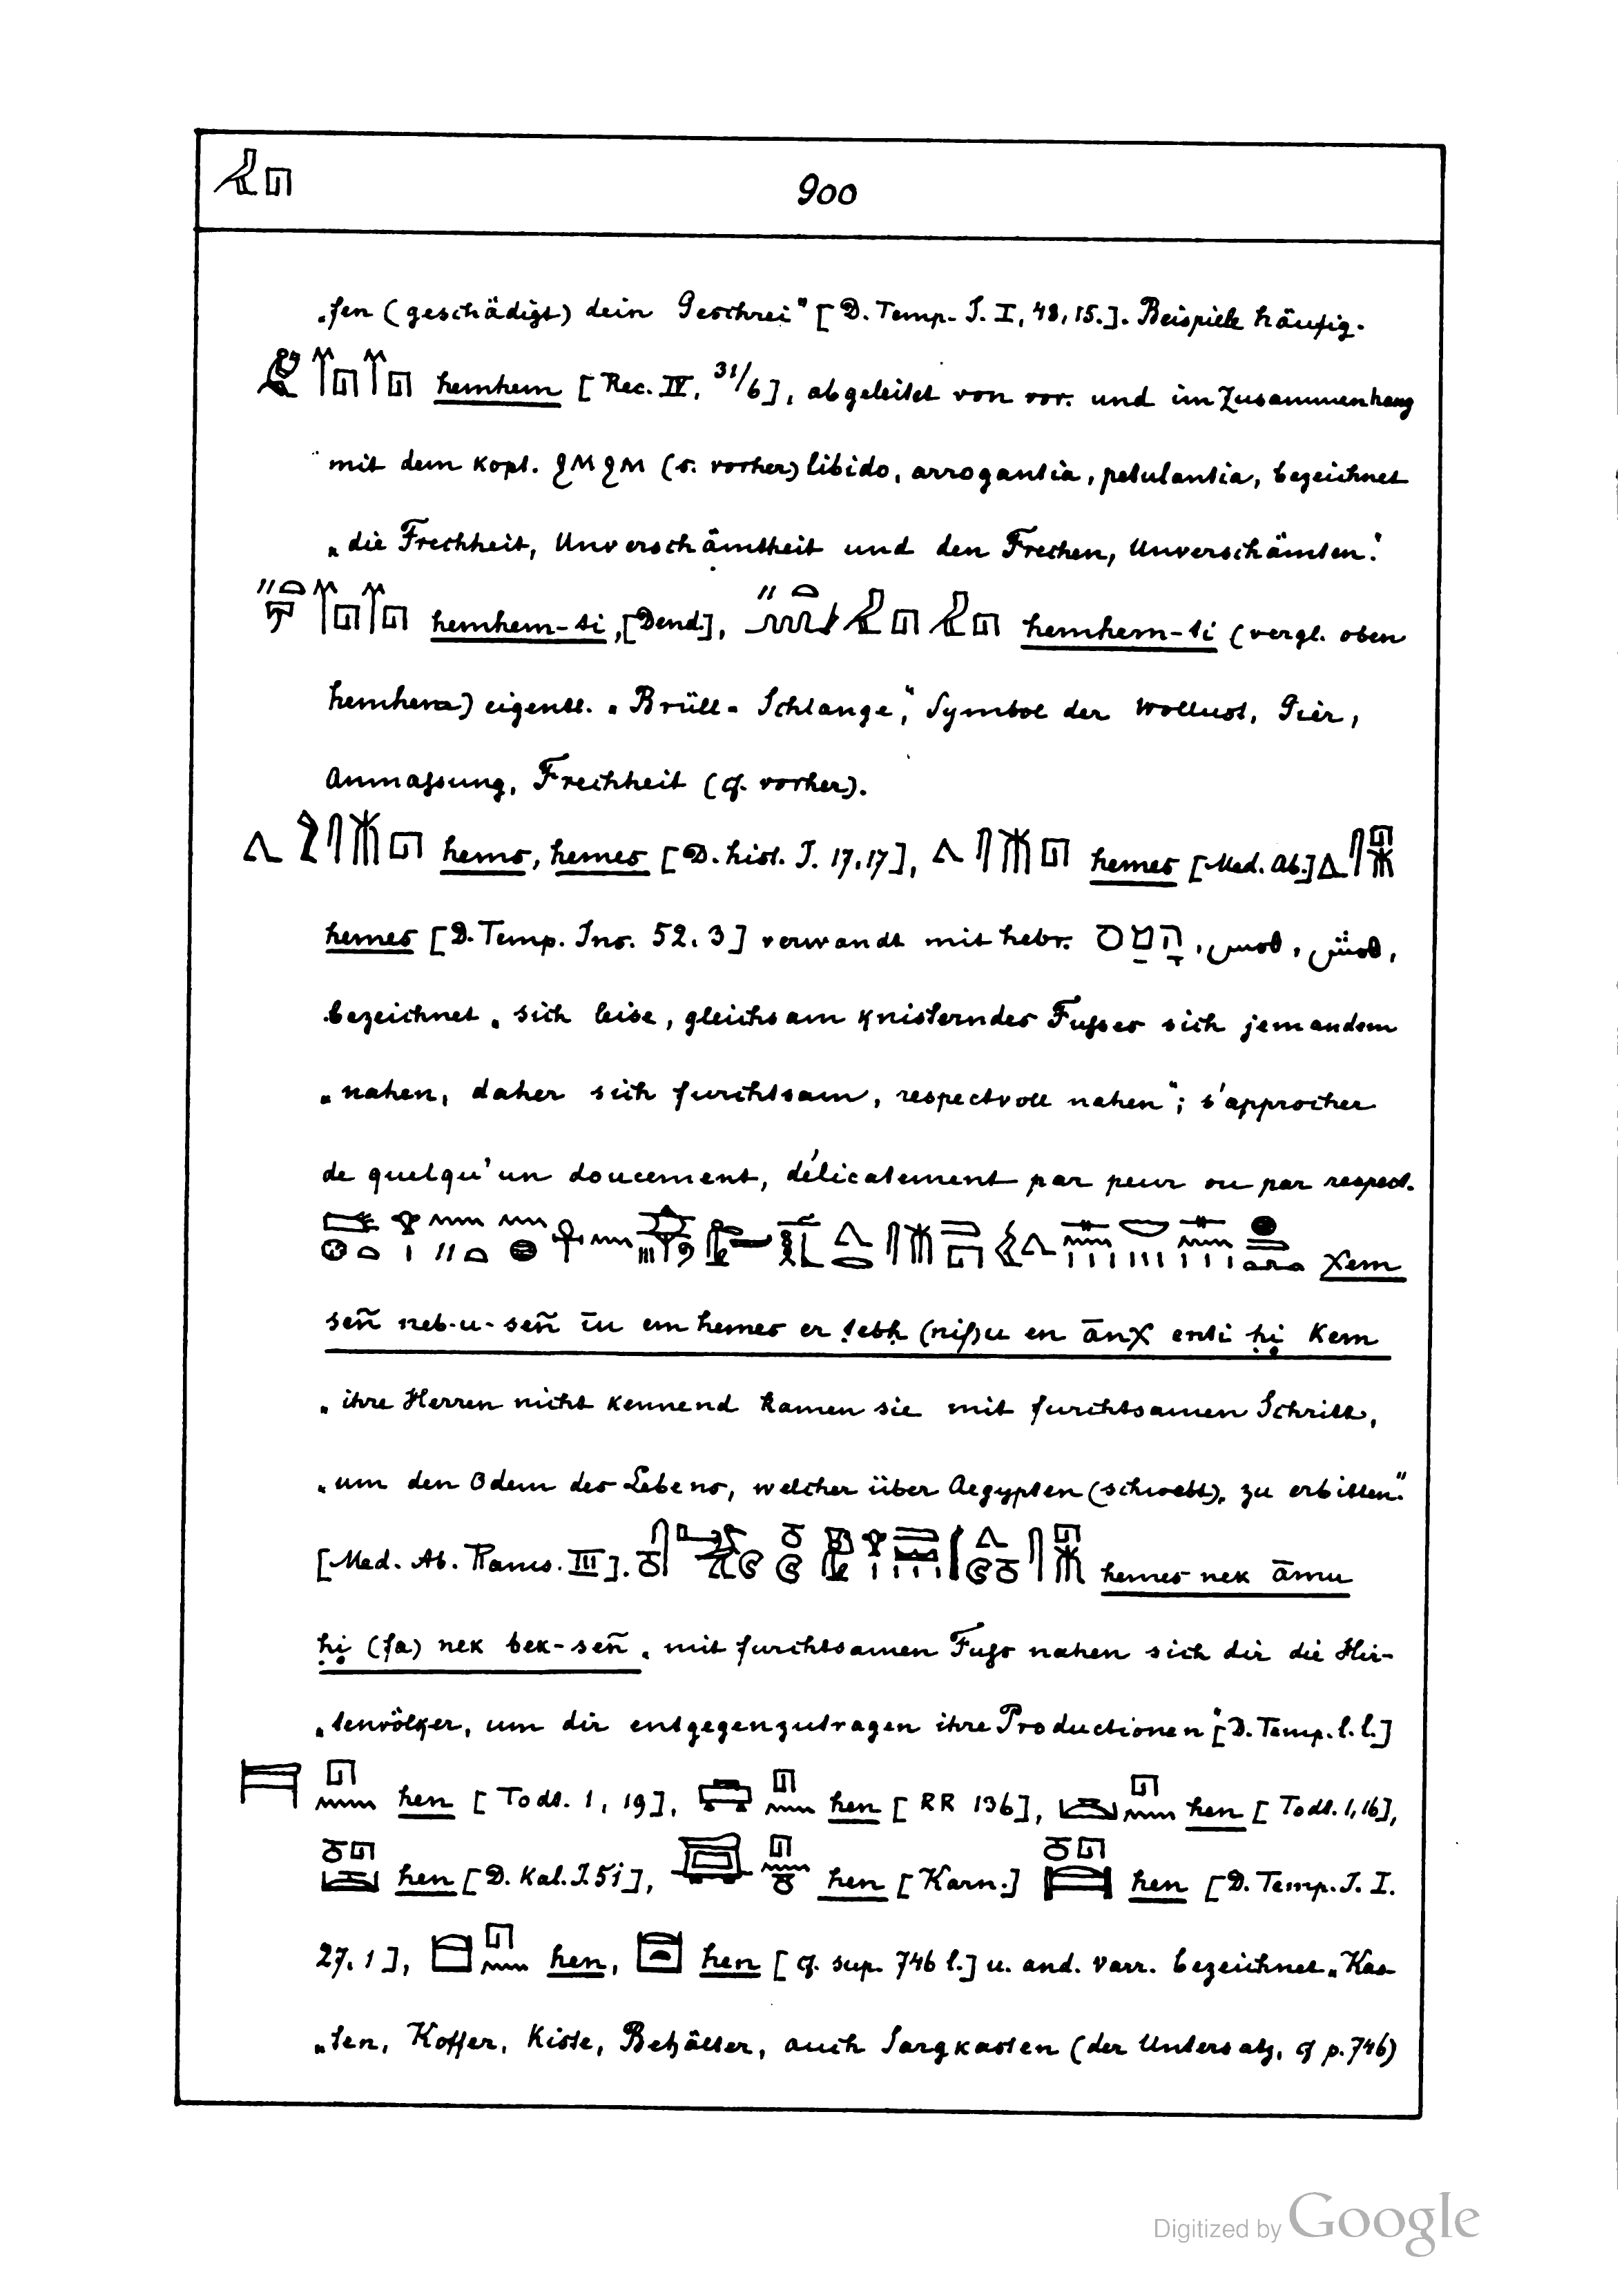 900
„fen (geschädigt) dein Geschrei" [D. Temp. I. I, 48, 15.]. Beispiele häufig.
hemhem [Rec. IV, 31/6], abgeleitet von vor. und im Zusammenhang
mit dem kopt. ϩⲙϩⲙ (s. vorher) libido, arrogantia, petulantia, bezeichnet
„die Frechheit, Unverschämtheit und den Frechen, Unverschämten."
hemhem-ti, [Dend.], hemhem-ti (vergl. oben
hemhem) eigentl. „Brüll-Schlange", Symbol der Wollust, Gier,
Anmaßung, Frechheit (cf. vorher).
hems, hemes [D. hist. I. 17,17], hemes [Med. Ab.]
hemes [D. Temp. Ins. 52. 3] verwandt mit hebr. הָמַס, همس, همش,
bezeichnet „sich leise, gleichsam knisterndes Fußes sich jemandem
„nahen, daher sich furchtsam, respectvoll nahen"; s'approcher
de quelqu'un doucement, délicatement par peur ou par respect.
χem
señ neb-u-señ īu em hemes er ṭebḥ (nif)u en ānχ enti ḥi Kem
„ihre Herren nicht kennend kamen sie mit furchtsamen Schritt,
„um den Odem des Lebens, welcher über Aegypten (schwebt), zu erbitten."
[Med. Ab. Rams. III]. hemes nek āmu
ḥi (fa) nek bek-señ „mit furchtsamen Fuß nahen sich dir die Hir-
„tenvölker, um dir entgegenzutragen ihre Productionen" [D. Temp. l. l.]
hen [Todt. 1, 19], hen [RR 136], hen [Todt. 1,16],
hen [D. Kal. I. 51], hen [Karn.] hen [D. Temp. I. I.
27, 1], hen, hen [cf. sup. 746 l.] u. and. varr. bezeichnet „Kas-
„ten, Koffer, Kiste, Behälter, auch Sargkasten (der Untersatz, cf p. 746)
Digitized by Google